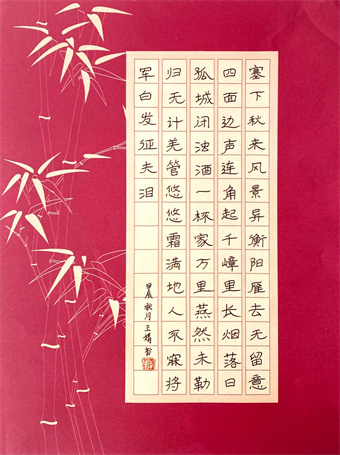 塞下秋来风景异衡阳雁去无留意
四面边声连角起千嶂里长烟落日
孤城闭浊酒一杯家万里燕然未勒
归无计羌管悠悠霜满地人不寐将
军白发征夫泪
甲辰秋月王